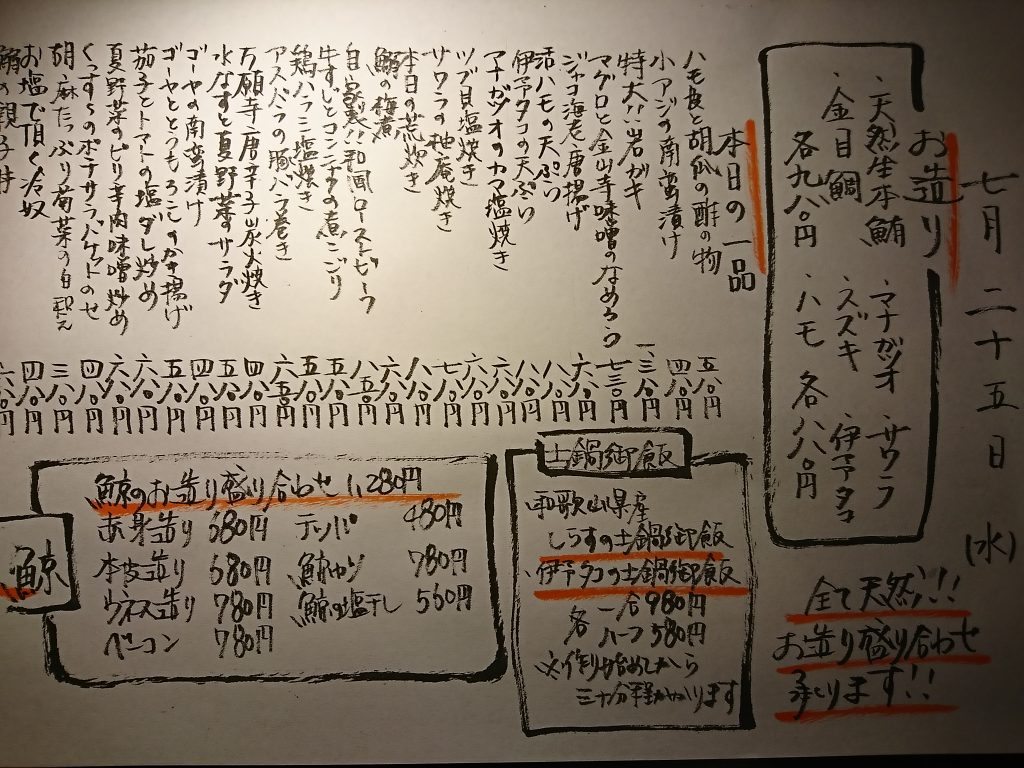 七月二十五日(水)
お造り
・天然生本鮪
・金目鯛
各九八〇円
・マナガツオ ・サワラ
・スズキ ・伊予タコ
・ハモ 各八八〇円
全て天然!!
お造り盛り合わせ
承ります!!
本日の一品
ハモ皮と胡瓜の酢の物 五八〇円
小アジの南蛮漬け 四八〇円
特大!!岩ガキ 一、三八〇円
マグロと金山寺味噌のなめろう 七三〇円
ジャコ海老唐揚げ 六八〇円
活ハモの天ぷら 八八〇円
伊予タコの天ぷら 八八〇円
マナガツオのカマ塩焼き 六八〇円
ツブ貝塩焼き 六八〇円
サワラの柚庵焼き 七八〇円
本日の荒炊き 八八〇円
鰯の梅煮
自家製!!和風ローストビーフ
牛すじとコンニャクの煮こごり 五八〇円
鶏ハラミ塩焼き 五八〇円
アスパラの豚バラ巻き 六五〇円
万願寺唐辛子炭火焼き 四八〇円
水なすと夏野菜のサラダ 五八〇円
ゴーヤの南蛮漬け 四八〇円
ゴーヤととうもろこしのかき揚げ 五八〇円
茄子とトマトの塩ダレ炒め 六八〇円
夏野菜のピリ辛肉味噌炒め 六八〇円
くっすらのポテサラバケットのせ 四八〇円
胡麻たっぷり菊菜の白和え 三八〇円
お塩で頂く冷奴 四八〇円
の親子丼 六八〇円
土鍋御飯
和歌山県産
しらすの土鍋御飯
伊予タコの土鍋御飯
各 一合 980円
ハーフ 580円
※作り始めてから
三十分程かかります
鯨
鯨のお造り盛り合わせ 1,280円
赤身造り 680円
本皮造り 680円
ウネス造り 780円
ベーコン 780円
テッパ 480円
鯨カツ 780円
鯨の塩干し 560円